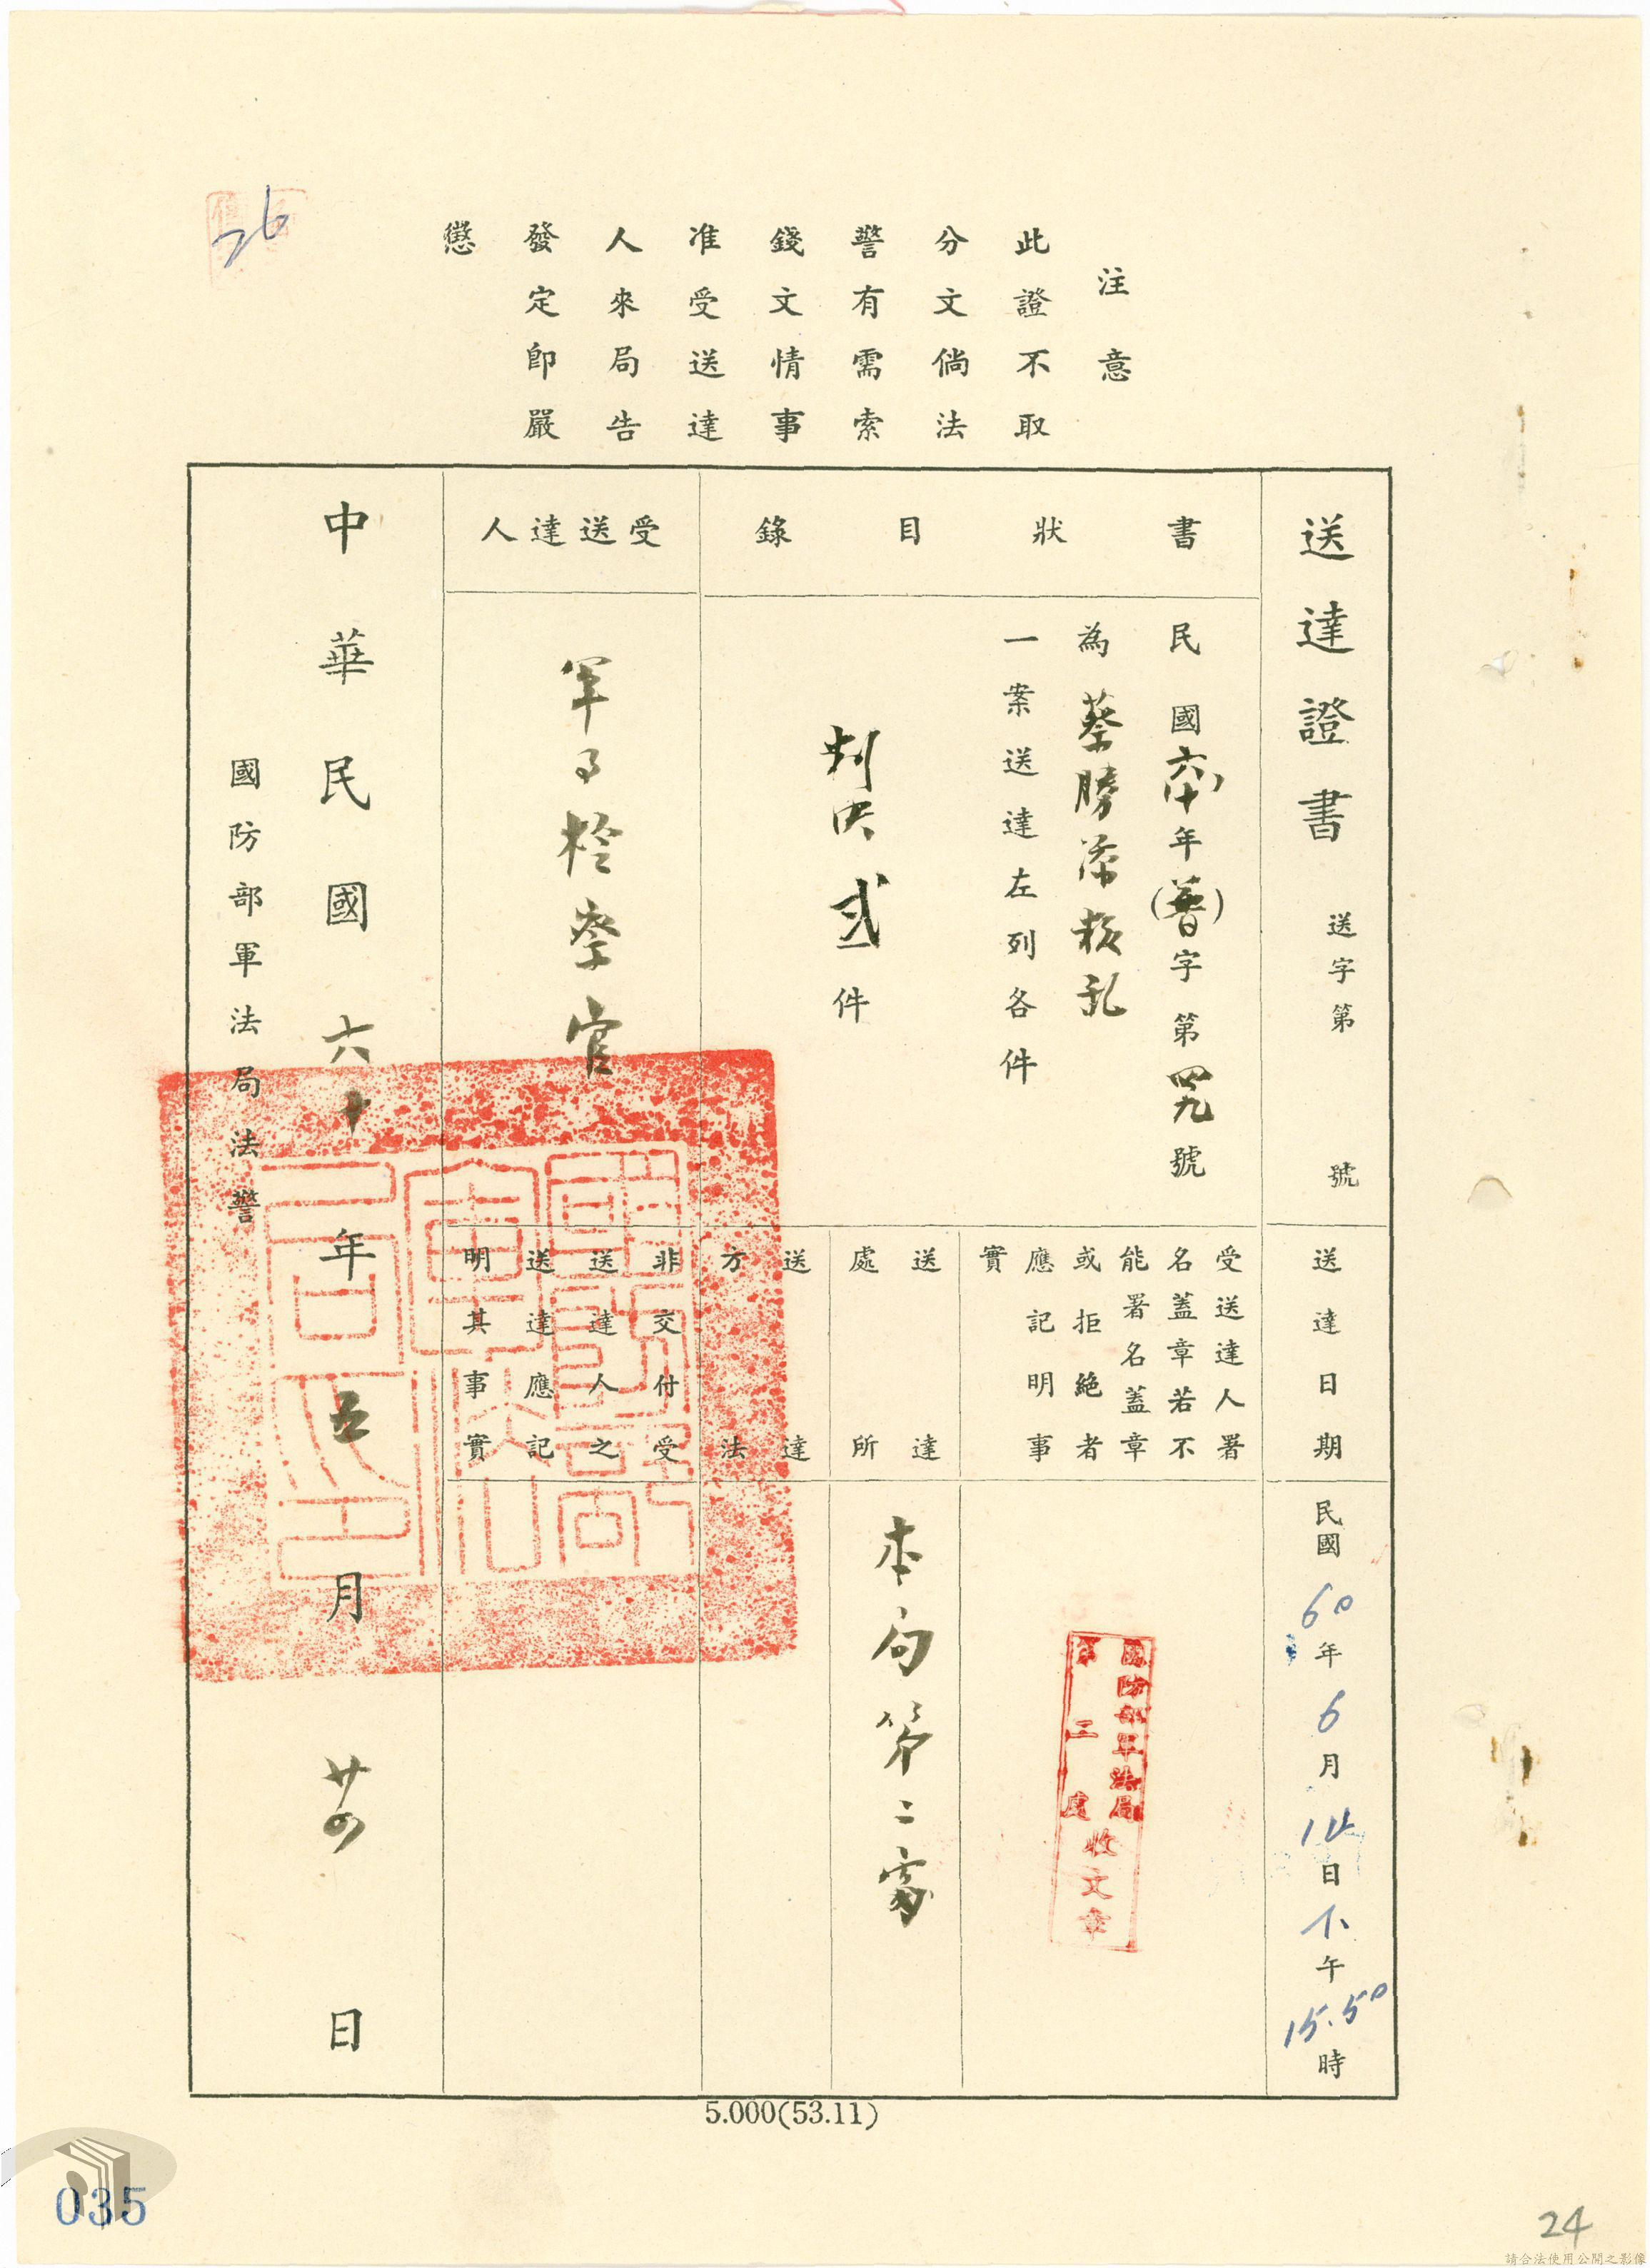 注意
此證不取
分文倘法
警有需索
錢文情事
准受送達
人來局告
發定即嚴
懲
送達證書 送字第 號
送達日期
民國60年6月14日下午15.50時
書狀目錄
民國六十年(普)字第四九號
為蔡勝添叛乱
一案送達左列各件
判决貳件
受送達人署
名蓋章若不
能署名蓋章
或拒絶者
應記明事
實
國防部軍法局
第二處
收文章
送達
處所
本局第二處
送達
方法
受送達人
軍事檢察官
非交付受
送達人之
送達應記
明其事實
中華民國六十年五月廿四日
國防部軍法局法警
5.000(53.11)
26
035
24
請合法使用公開之影像